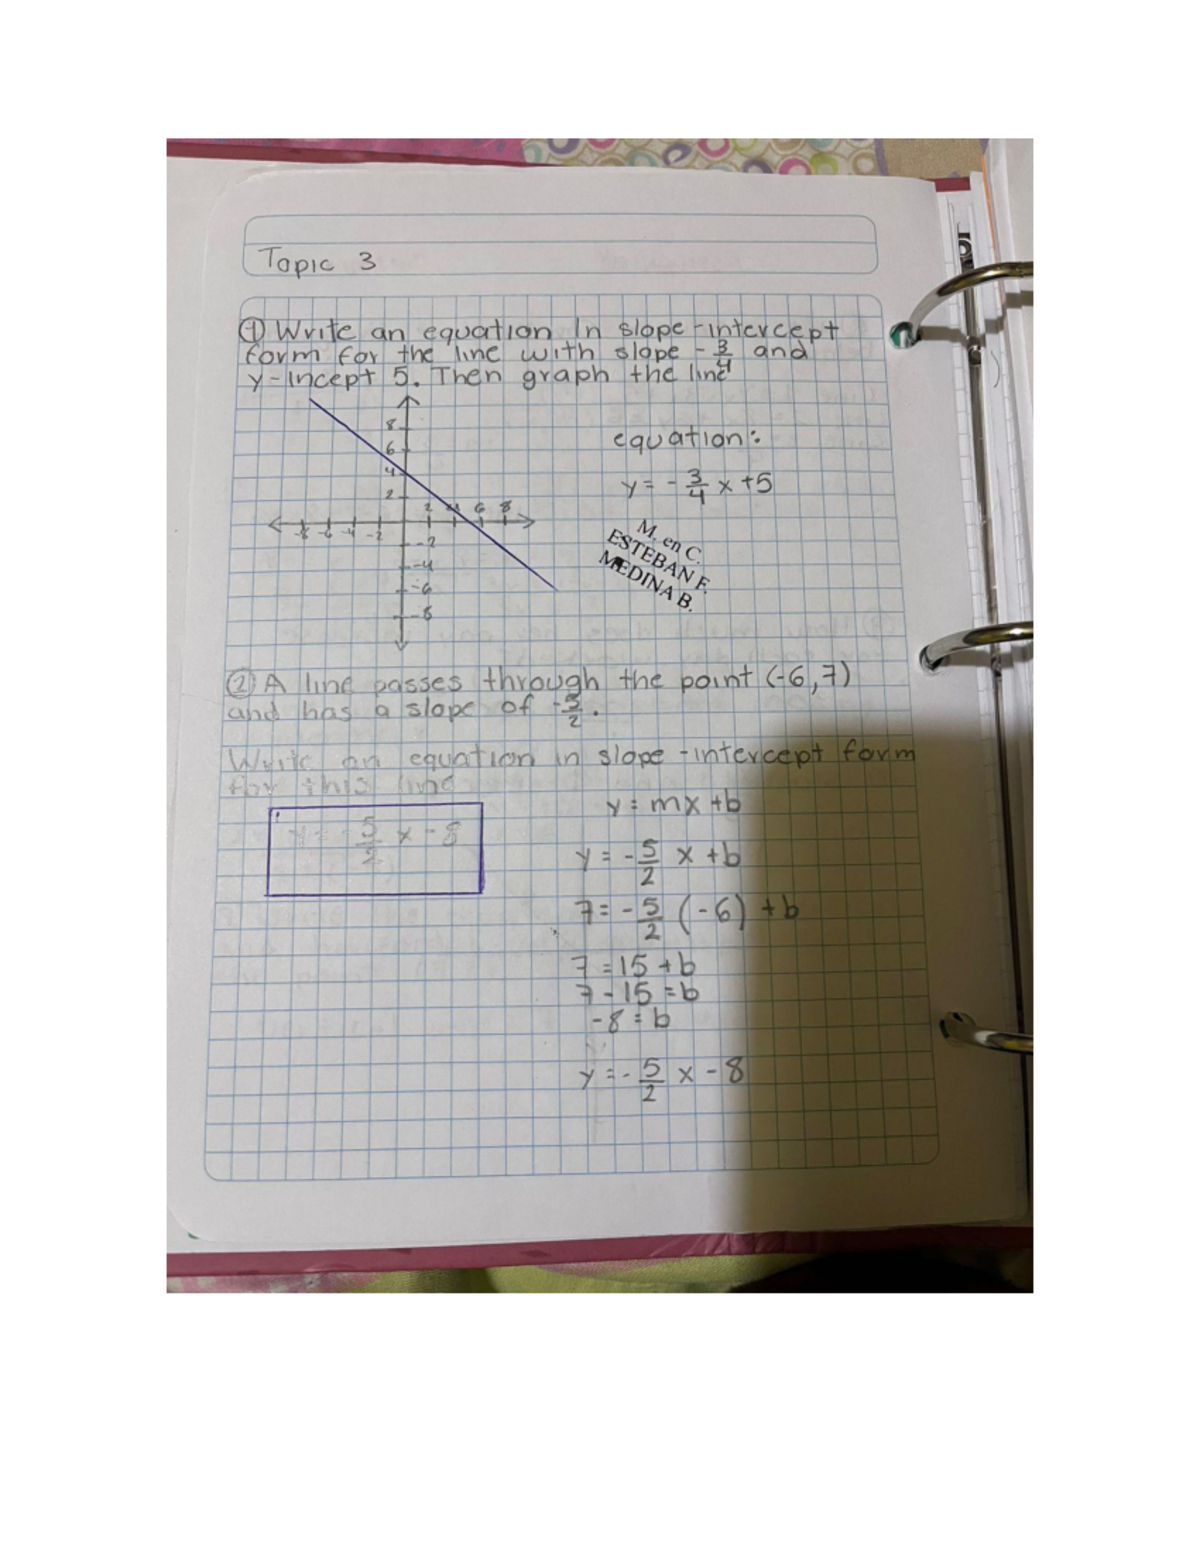 Topic 3
① Write an equation In slope-intercept
form for the line with slope - 3/4 and
y-incept 5. Then graph the line
8
6
4
2
-8 -6 -4 -2
2 4 6 8
-2
-4
-6
-8
equation:
y = - 3/4 x +5
M. en C.
ESTEBAN F.
MEDINA B.
② A line passes through the point (-6,7)
and has a slope of -5/2.
Write an equation in slope-intercept form
for this line
y = - 5/2 x - 8
y = mx +b
y = - 5/2 x +b
7 = - 5/2 (-6) +b
7 = 15 +b
7 - 15 = b
-8 = b
y = - 5/2 x - 8